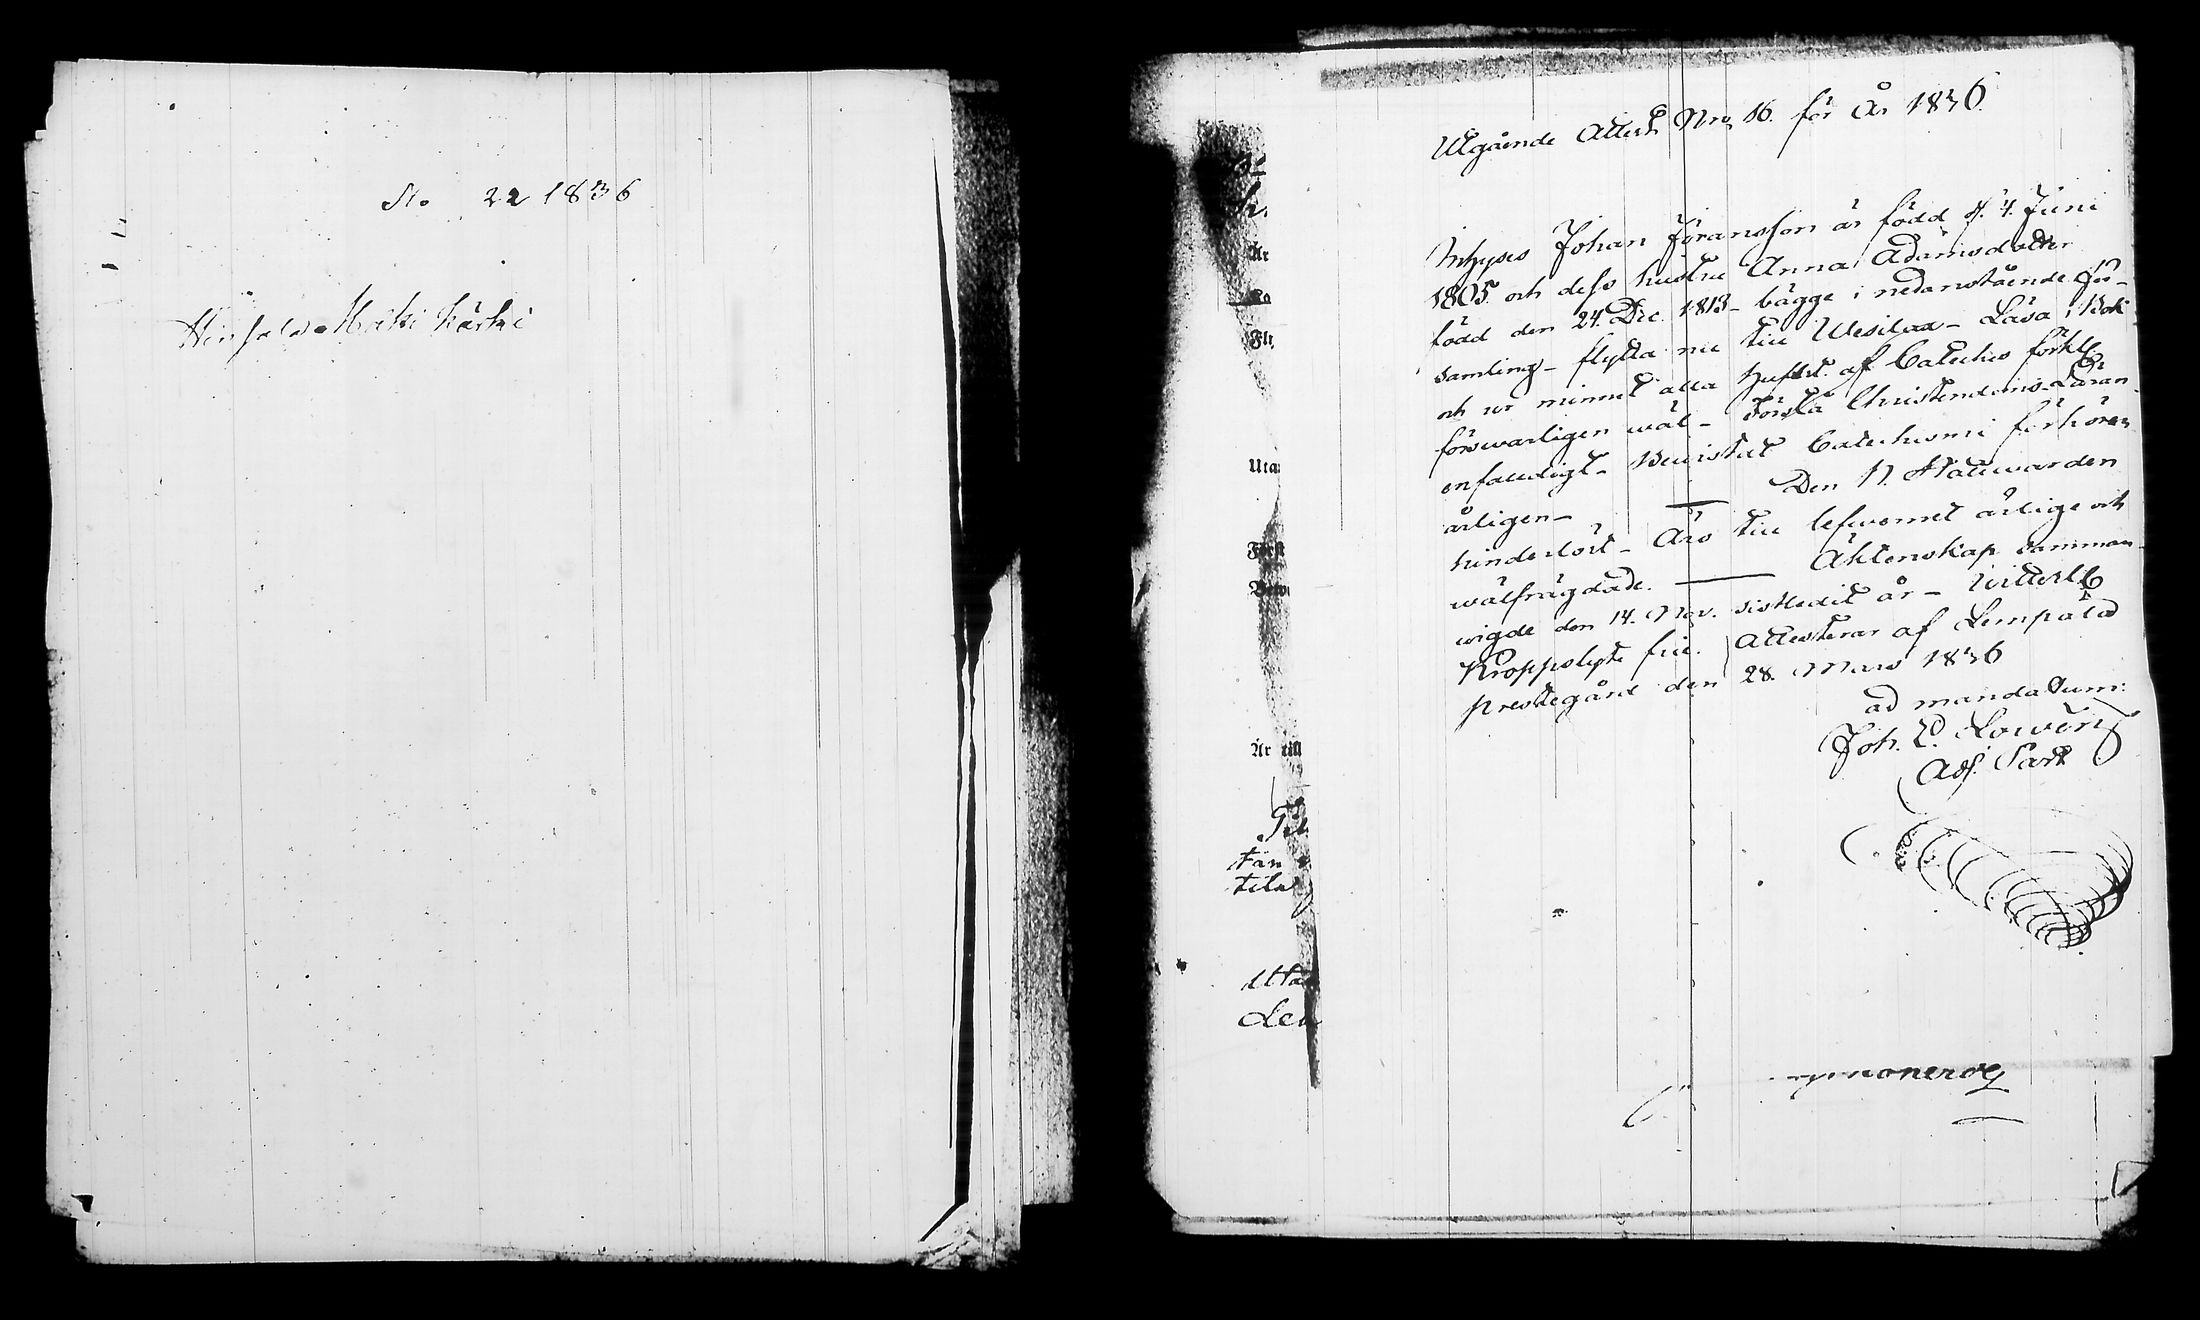 No 22 1836
Mäki Kärki
Utgående Attest Nro 16. för År 1836.
Inhyses Johan Jöransson är född d. 4. Juni
1805. och dess hustru Anna Adamsdotter
född den 24. Dec. 1813 - bägge i nedanstående För-
samling - flytta nu till Wesilax - Läsa i Bok
och ur minnet alla hufst. af Catches förkl:
försvarligen wäl - Förstå Christendoms-Läran
enfaldigt - Bewistat Catechismi förhören
årligen - Den H. Nattwarden
hinderlöst - Äro till lefwernet ärlige och
wälfrägdade. Äktenskap samman-
wigde den 14. Nov. sistledit år - Witterl:
Kroppslyte frie. Attesterar af Lempälä
prestegård den 28. Mars 1836
ad mandatum:
Joh. E. Lowén
Adj. Past
Är
Uta
Först
Är till
tän
tila
Uta